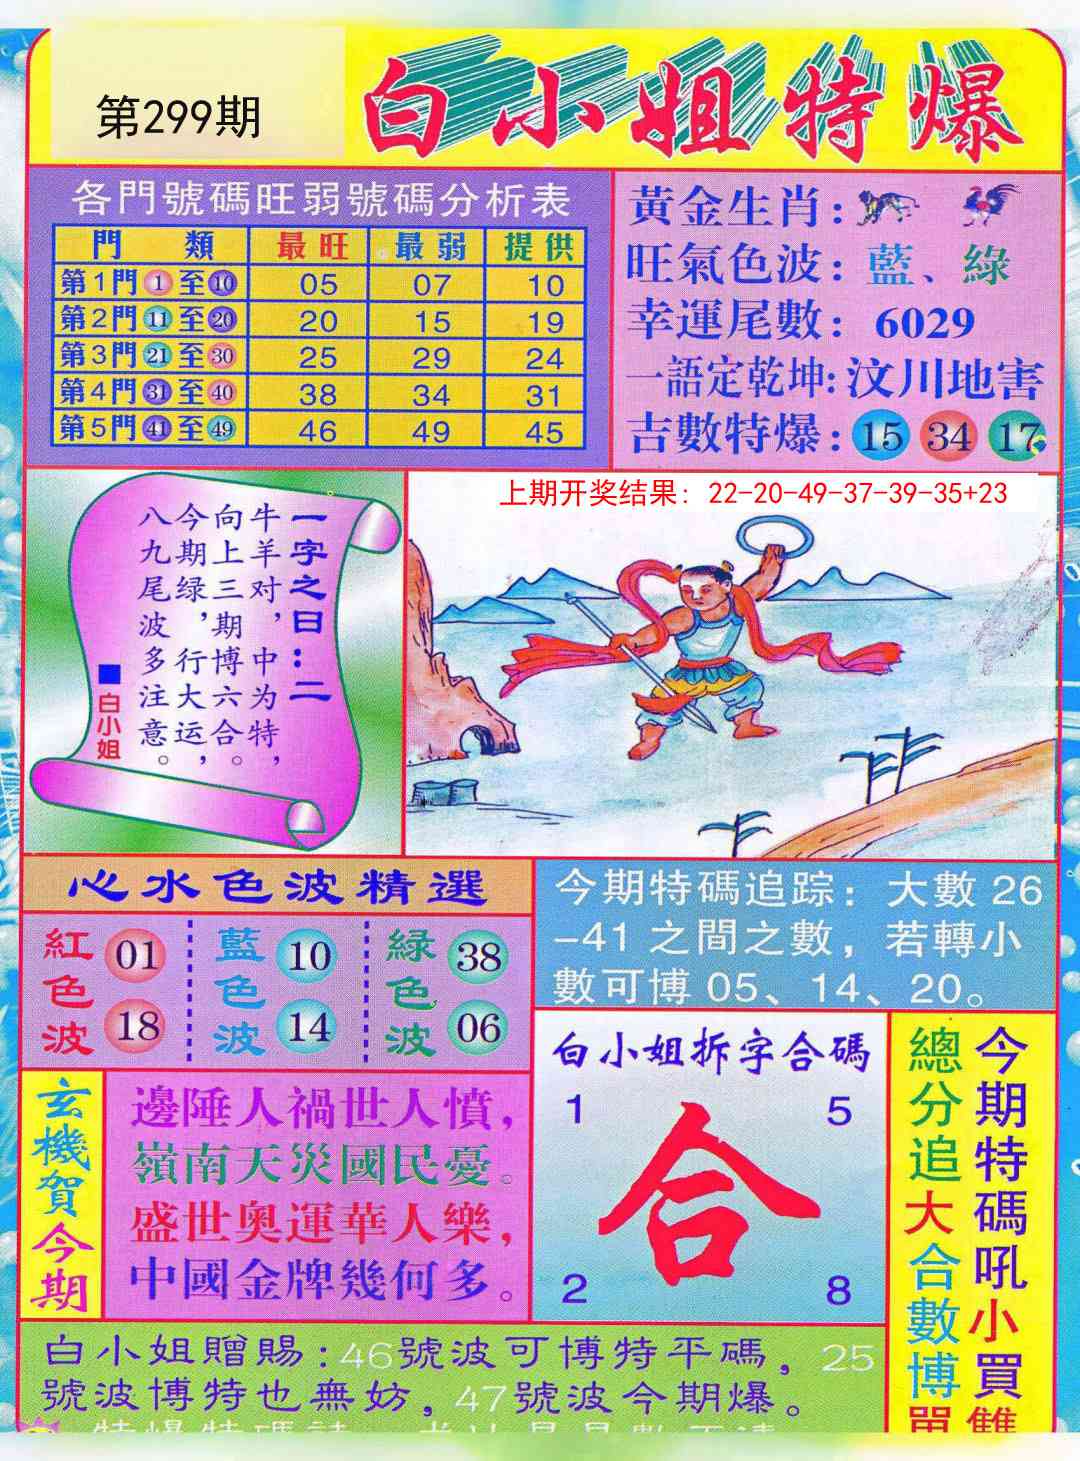 第299期
白小姐特爆
各門號碼旺弱號碼分析表
門類 最旺 最弱 提供
第1門 1 至 10 05 07 10
第2門 11 至 20 20 15 19
第3門 21 至 30 25 29 24
第4門 31 至 40 38 34 31
第5門 41 至 49 46 49 45
黃金生肖:
旺氣色波:藍、綠
幸運尾數:6029
一語定乾坤:汶川地害
吉數特爆:15 34 17
上期开奖结果：22-20-49-37-39-35+23
一字之曰:二
牛羊对，中为特，
向上三期博六合。
今期绿，行大运，
八九尾波多注意。
■白小姐
心水色波精選
紅色波 01 18
藍色波 10 14
綠色波 38 06
今期特碼追踪：大數 26
-41 之間之數，若轉小
數可博 05、14、20。
玄機賀今期
邊陲人禍世人憤，
嶺南天災國民憂。
盛世奧運華人樂，
中國金牌幾何多。
白小姐拆字合碼
1 5
合
2 8
今期特碼吼小買雙
總分追大合數博單
白小姐贈賜:46號波可博特平碼，25
號波博特也無妨，47號波今期爆。